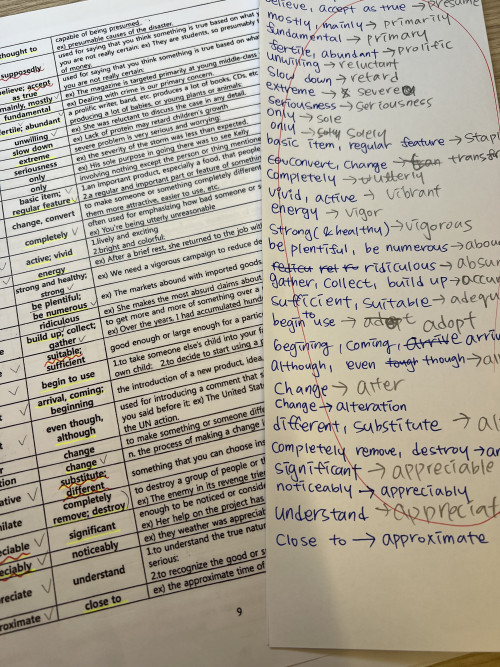 capable of being presumed.
ex) presumable causes of the disaster.
thought to
used for saying that you think something is true based on what
you are not really certain: ex) They are students, so presumably
of money.
supposedly
used for saying that you think something is true based on what
you are not really certain.
believe; accept as true
ex) The magazine is targeted primarily at young middle-class
mainly, mostly
ex) Dealing with crime is our primary concern.
fundamental
a prolific writer, band, etc. produces a lot of books, CDs, etc
fertile; abundant
producing a lot of babies, or young plants or animals:
unwilling
ex) She was reluctant to discuss the case in any detail.
slow down
ex) Lack of protein may retard children's growth
extreme
severe problem is very serious and worrying:
seriousness
ex) the severity of the storm was less than expected.
only
ex) His sole purpose in going there was to see Kelly
only
involving nothing except the person or thing mentione
basic item;
regular feature
1.an important product, especially a food, that people
2.a regular and important part or feature of something
change, convert
to make someone or something completely different
them more attractive, easier to use, etc.
completely
often used for emphasizing how bad someone or s
ex) You're being utterly unreasonable
active; vivid
1.lively and exciting
2.bright and colorful:
energy
ex) After a brief rest, she returned to the job wit
strong and healthy;
strong
ex) We need a vigorous campaign to reduce de
be plentiful;
be numerous
ex) The markets abound with imported goods.
ridiculous
ex) She makes the most absurd claims about
build up; collect;
gather
to get more and more of something over a
ex) Over the years, I had accumulated hund
suitable;
sufficient
good enough or large enough for a partic
begin to use
1.to take someone else's child into your f
own child: 2.to decide to start using a p
arrival, coming;
beginning
the introduction of a new product, idea,
even though,
although
used for introducing a comment that s
you said before it: ex) The United Stat
the UN action.
change
to make something or someone diff
change
n. the process of making a change
substitute;
different
something that you can choose ins
completely
remove; destroy
to destroy a group of people or t
ex) The enemy in its revenge trie
significant
enough to be noticed or consider
ex) Her help on the project has
noticeably
ex) they weather was apprecia
understand
1.to understand the true natur
serious:
2.to recognize the good or s
close to
ex) the approximate time of
9
believe, accept as true → presume
mostly, mainly → primarily
fundamental → primary
fertile, abundant → prolific
unwilling → reluctant
Slow down → retard
extreme → severe
Seriousness → Seriousness
only → sole
only → solely
basic item, regular feature → stap
convert, change → transfor
Completely → utterly
vivid, active → vibrant
energy → vigor
Strong (& healthy) → vigorous
be plentiful, be numerous → abou
ridiculous → absur
gather, collect, build up → accum
sufficient, suitable → adequ
begin to use → adopt
begining, coming, arrive → arriv
although, even though → al
Change → alter
Change → alteration
different, substitute → al
Completely remove, destroy → an
significant → appreciable
noticeably → appreciably
understand → appreciat
Close to → approximate